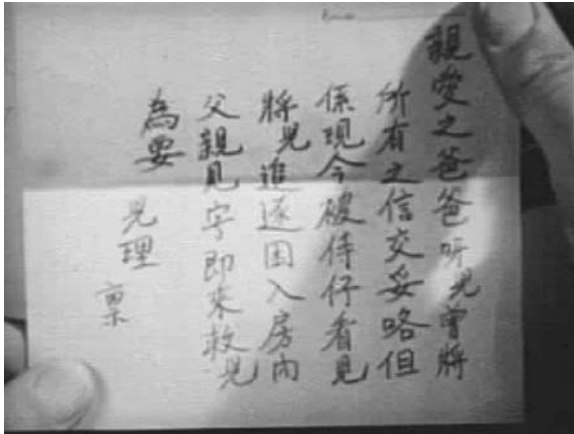 親愛之爸爸听児曾將
所有之信交妥略但
係現今被侍仔看見
將児追逐困入房內
父親見字即來救児
為要
児理
稟